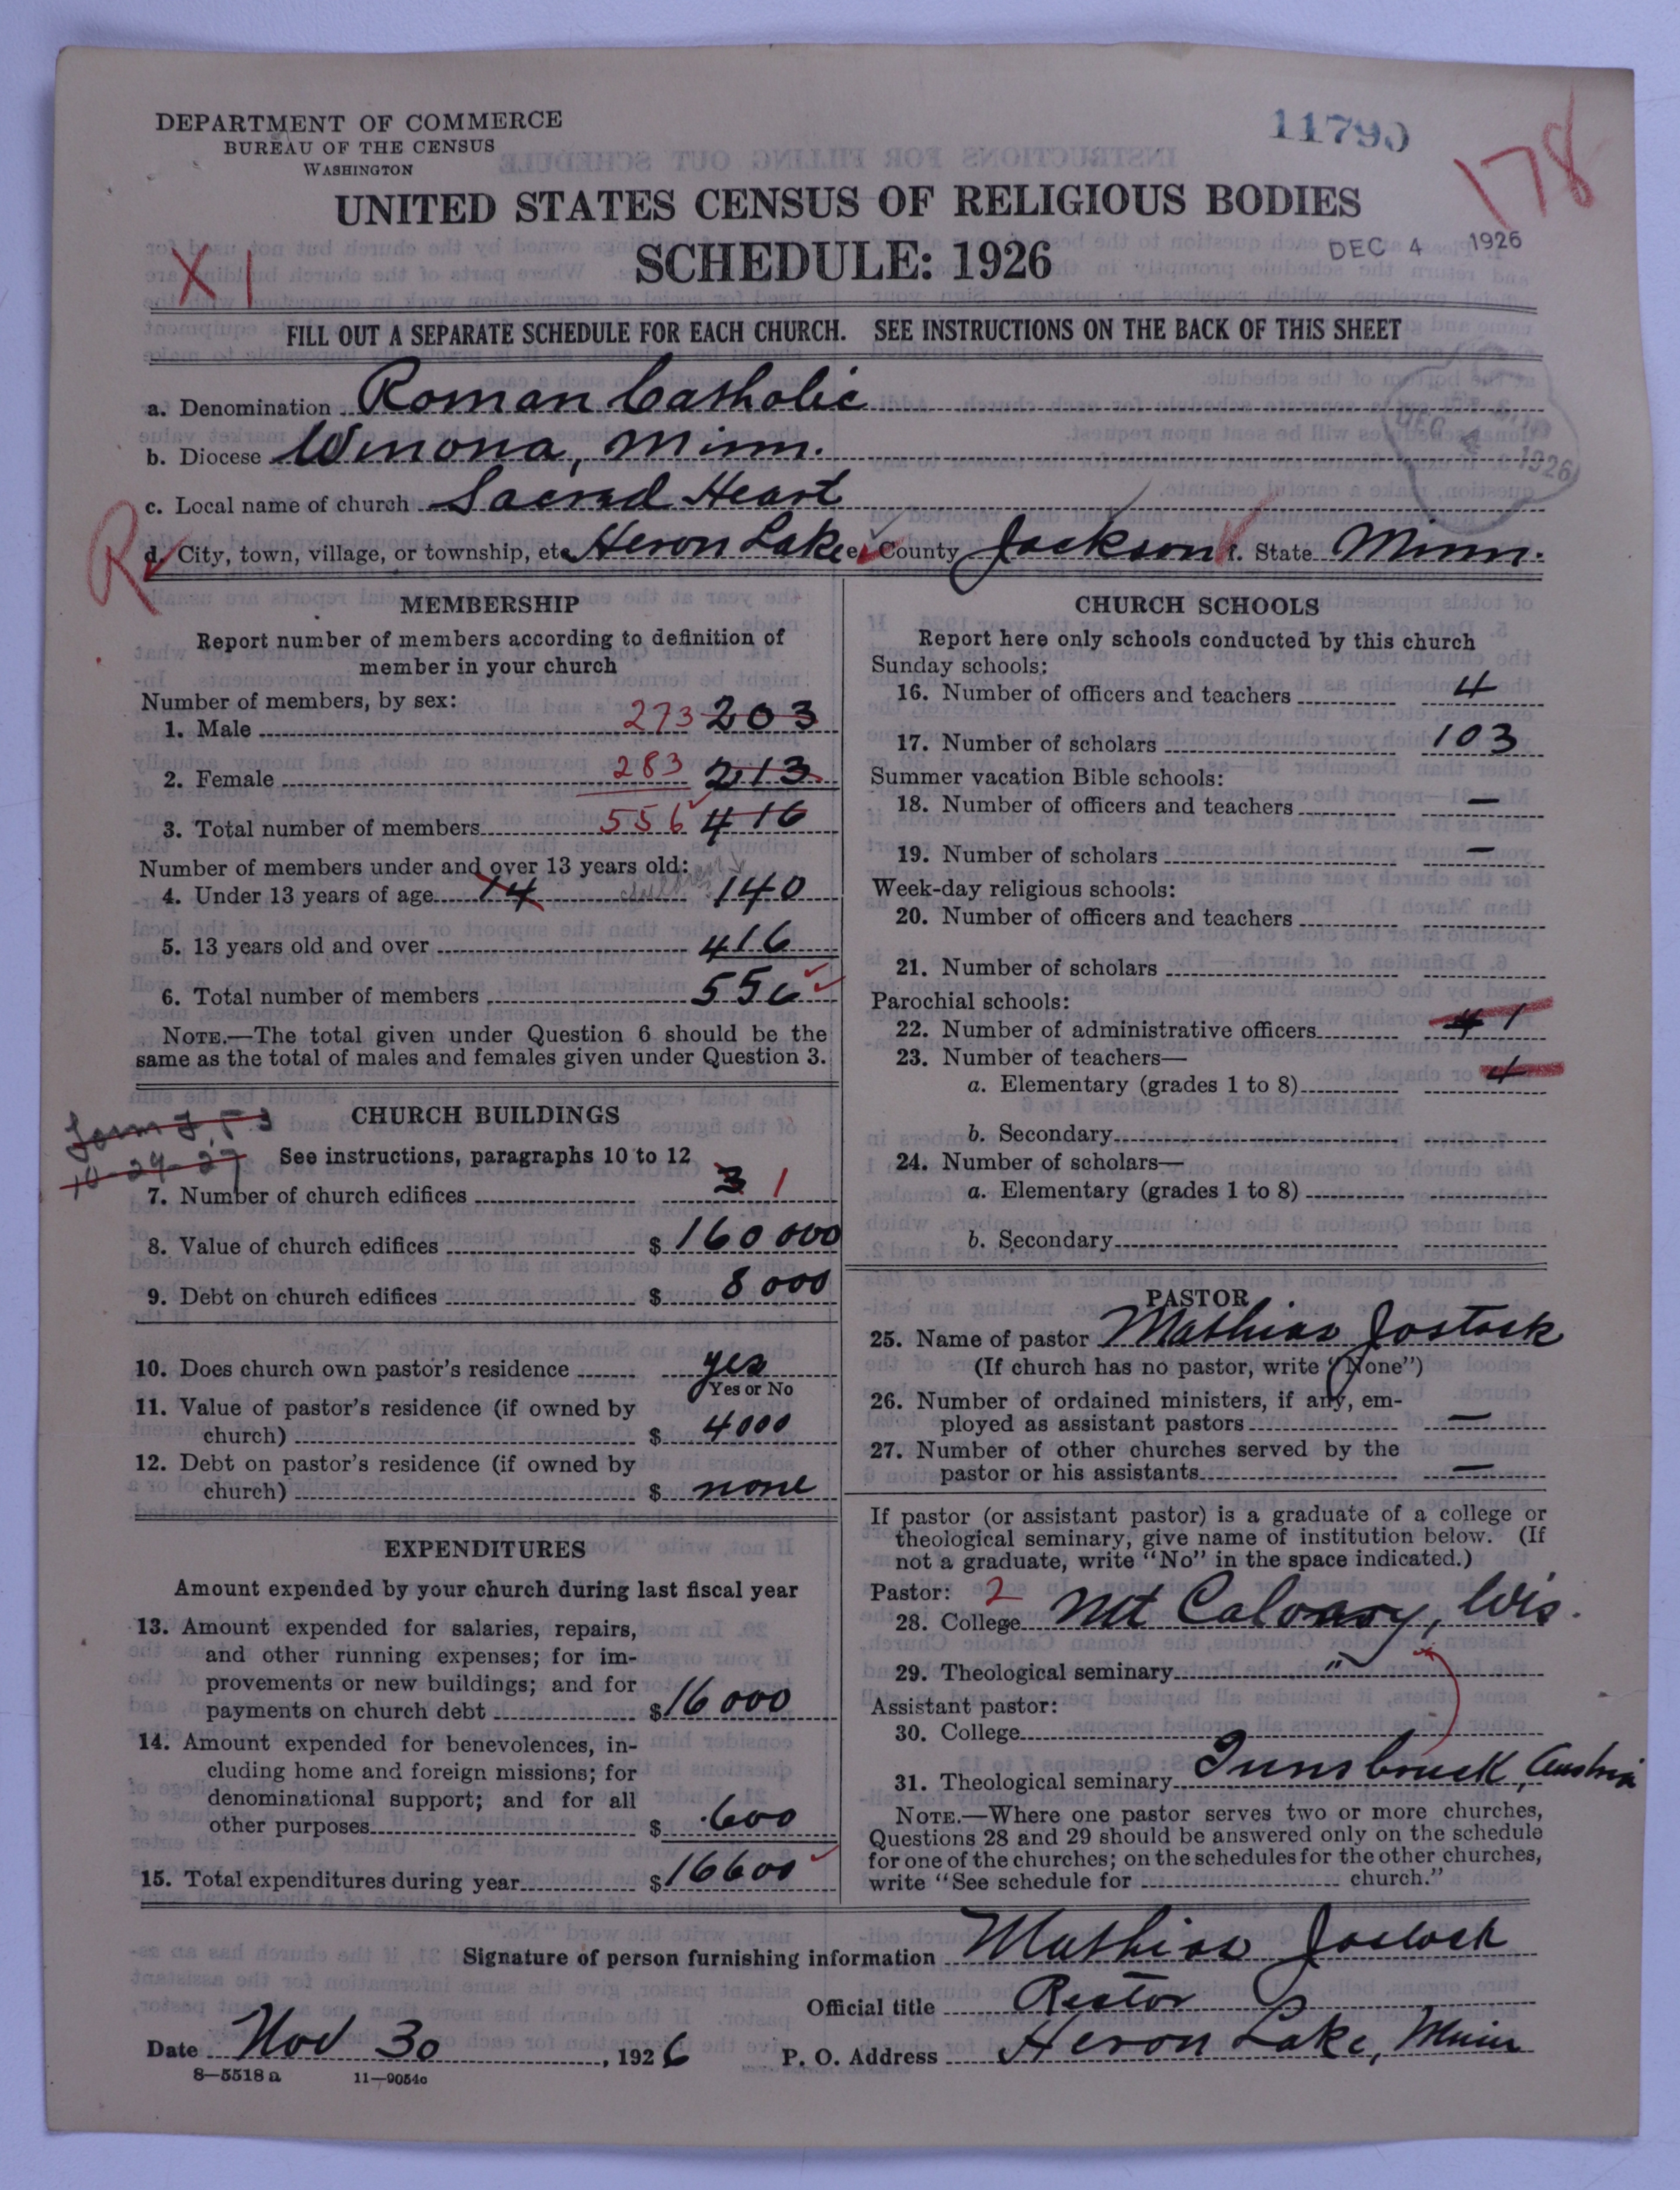 DEPARTMENT OF COMMERCE
BUREAU OF THE CENSUS
WASHINGTON
11790
178
UNITED STATES CENSUS OF RELIGIOUS BODIES
SCHEDULE: 1926
DEC 4 1926
X I
FILL OUT A SEPARATE SCHEDULE FOR EACH CHURCH. SEE INSTRUCTIONS ON THE BACK OF THIS SHEET
a. Denomination Roman Catholic
b. Diocese Winona, Minn.
DEC 4 1926
c. Local name of church Sacred Heart
R
d. City, town, village, or township, etc. Heron Lake e. County Jackson f. State Minn.
MEMBERSHIP
Report number of members according to definition of
member in your church
Number of members, by sex:
1. Male 273 203
2. Female 283 213
3. Total number of members 556 416
Number of members under and over 13 years old:
4. Under 13 years of age 14 children 140
5. 13 years old and over 416
6. Total number of members 556
NOTE.—The total given under Question 6 should be the
same as the total of males and females given under Question 3.
CHURCH BUILDINGS
10-24-27
See instructions, paragraphs 10 to 12
7. Number of church edifices 3 1
8. Value of church edifices $ 160 000
9. Debt on church edifices $ 8 000
10. Does church own pastor's residence yes
Yes or No
11. Value of pastor's residence (if owned by
church) $ 4000
12. Debt on pastor's residence (if owned by
church) $ none
EXPENDITURES
Amount expended by your church during last fiscal year
13. Amount expended for salaries, repairs,
and other running expenses; for im-
provements or new buildings; and for
payments on church debt $ 16 000
14. Amount expended for benevolences, in-
cluding home and foreign missions; for
denominational support; and for all
other purposes $ 600
15. Total expenditures during year $ 16600
CHURCH SCHOOLS
Report here only schools conducted by this church
Sunday schools:
16. Number of officers and teachers 4
17. Number of scholars 103
Summer vacation Bible schools:
18. Number of officers and teachers —
19. Number of scholars —
Week-day religious schools:
20. Number of officers and teachers
21. Number of scholars
Parochial schools:
22. Number of administrative officers 4 1
23. Number of teachers—
a. Elementary (grades 1 to 8) 4
b. Secondary
24. Number of scholars—
a. Elementary (grades 1 to 8)
b. Secondary
PASTOR
25. Name of pastor Mathias Jostock
(If church has no pastor, write "None")
26. Number of ordained ministers, if any, em-
ployed as assistant pastors —
27. Number of other churches served by the
pastor or his assistants —
If pastor (or assistant pastor) is a graduate of a college or
theological seminary, give name of institution below. (If
not a graduate, write "No" in the space indicated.)
Pastor: 2
28. College Mt Calvary, Wis.
29. Theological seminary "
Assistant pastor:
30. College
31. Theological seminary Innsbruck, Austria
NOTE.—Where one pastor serves two or more churches,
Questions 28 and 29 should be answered only on the schedule
for one of the churches; on the schedules for the other churches,
write "See schedule for church."
Signature of person furnishing information Mathias Jostock
Official title Rector
Date Nov 30, 1926 P. O. Address Heron Lake, Minn
8—5518 a 11—9054c